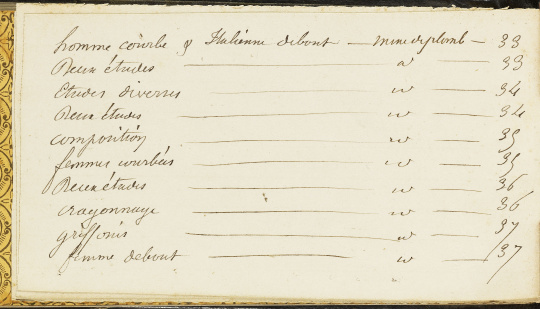 homme courbé & Italienne debout — mine de plomb — 33
Deux études — " — 33
Etudes diverses — " — 34
Deux études — " — 34
composition — " — 35
femmes courbées — " — 35
Deux études — " — 36
crayonnage — " — 36
griffonis — " — 37
femme debout — " — 37